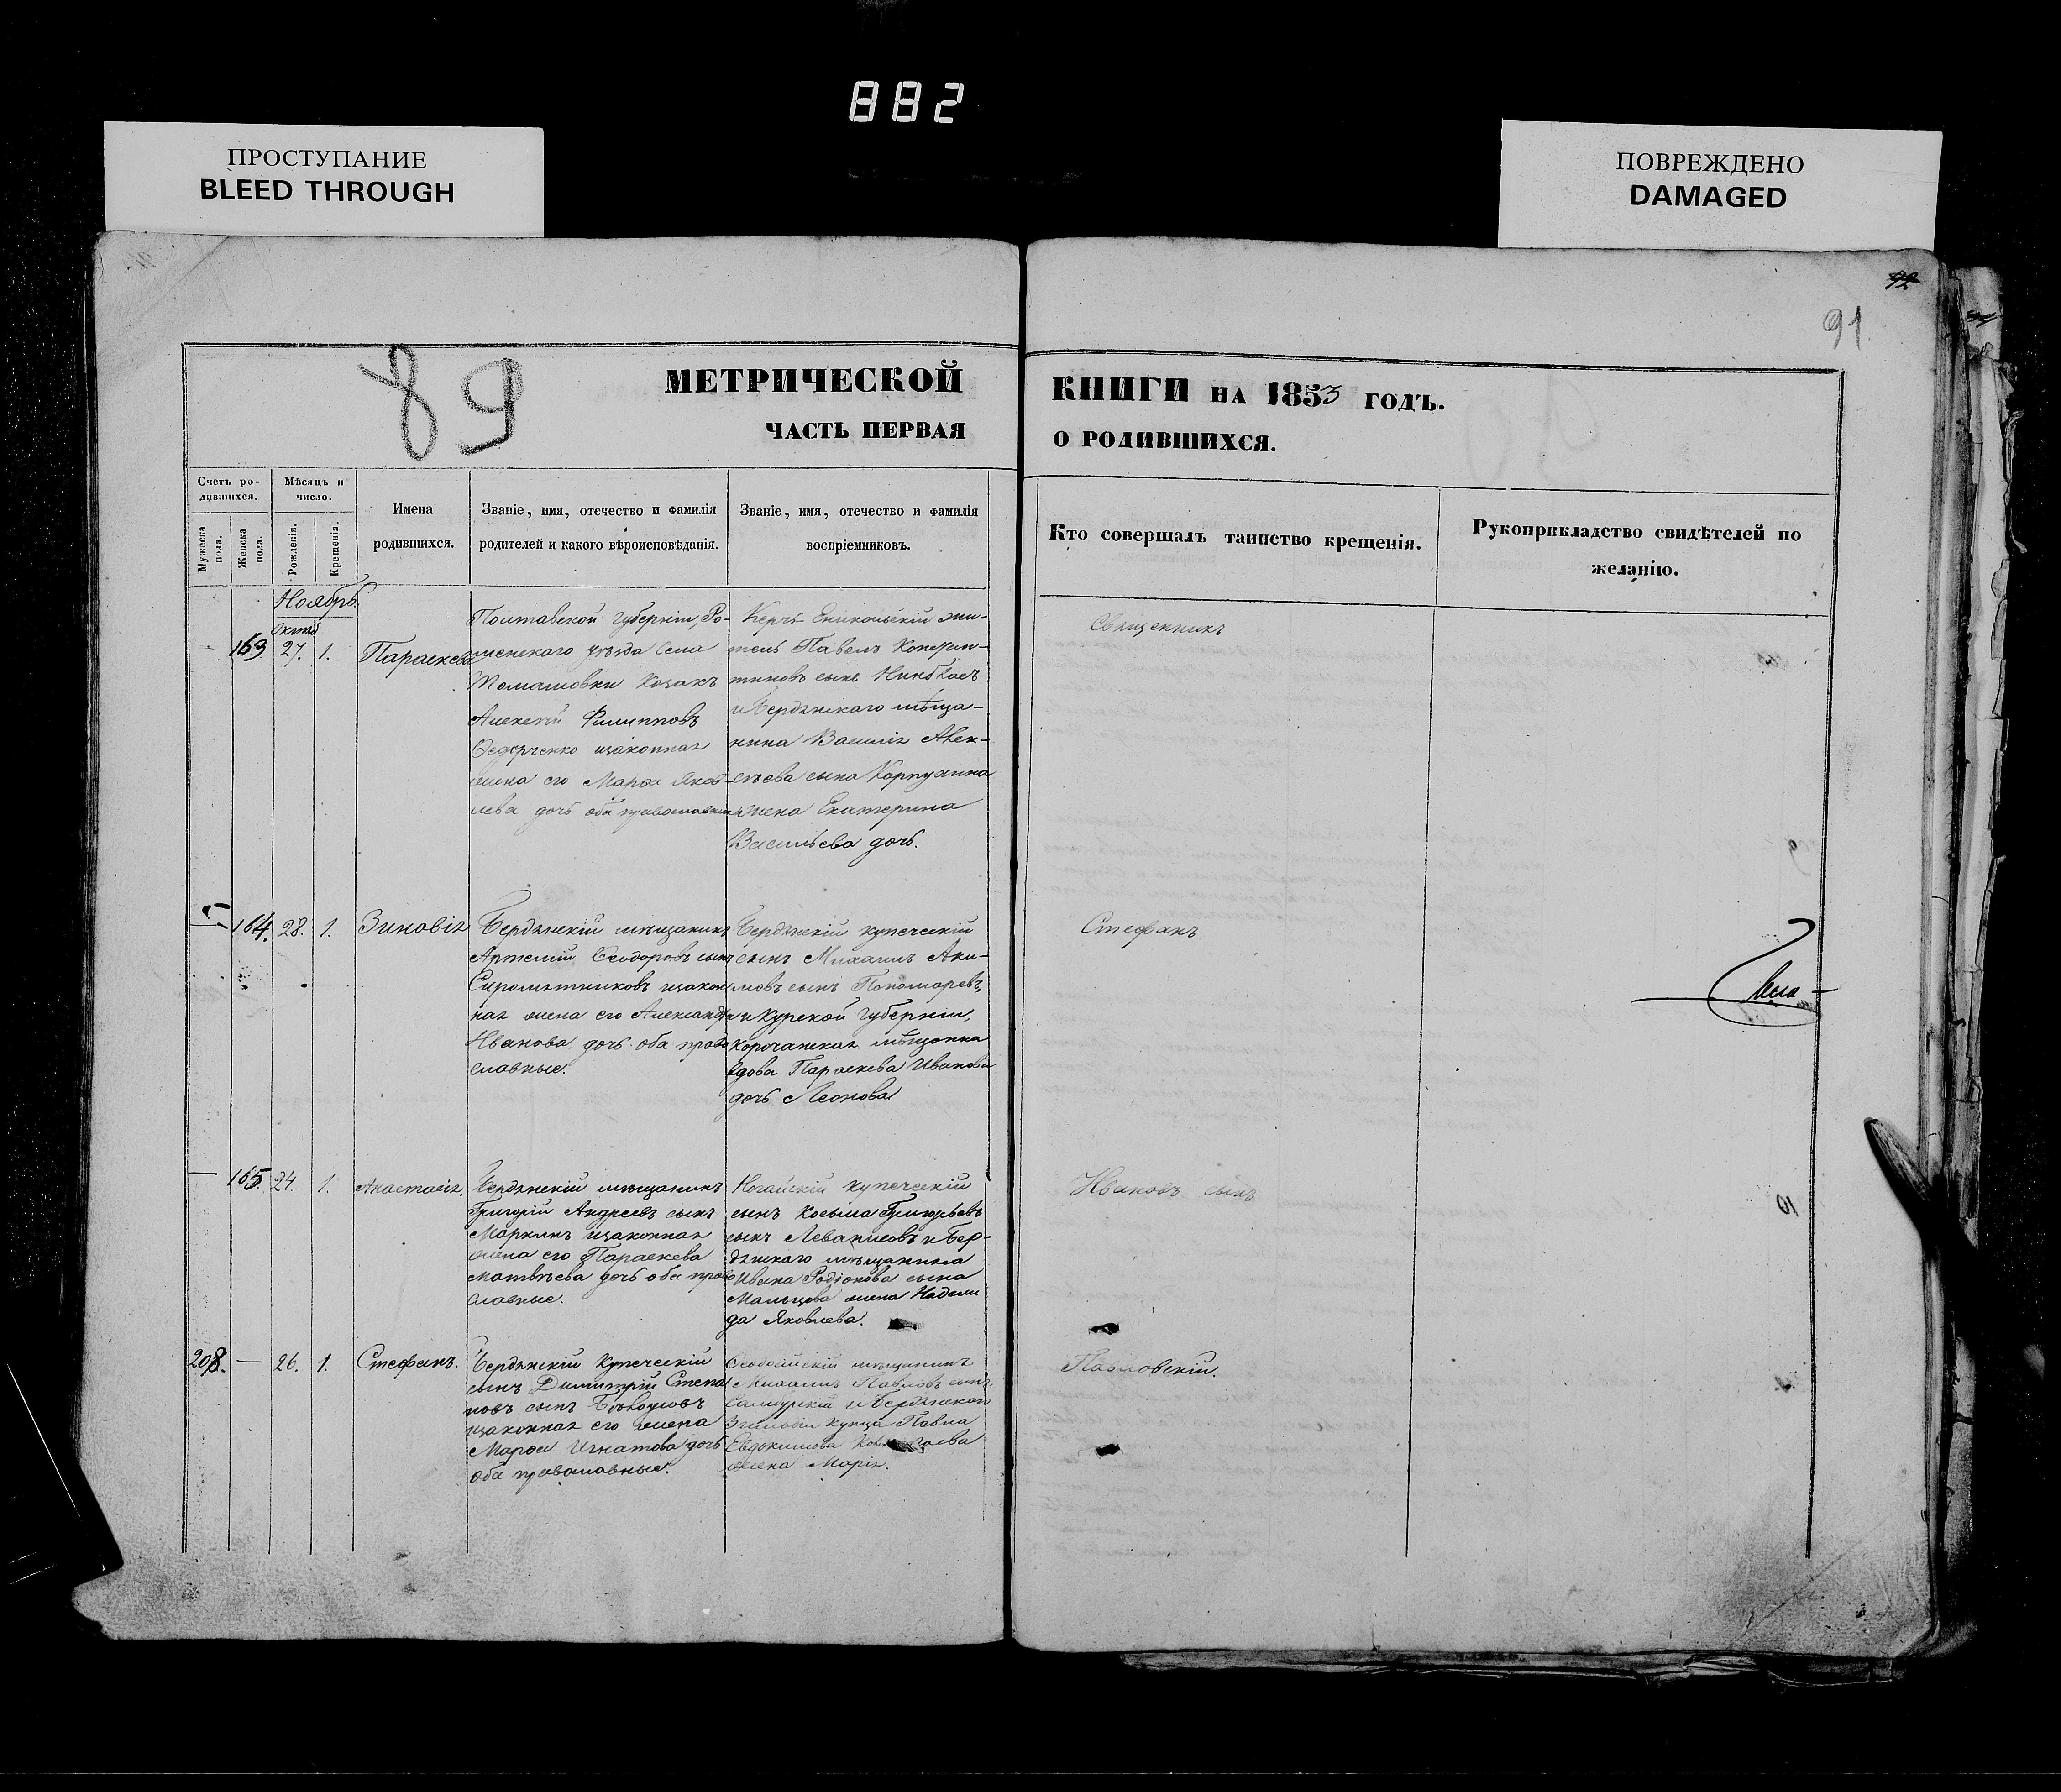 882
ПРОСТУПАНИЕ
BLEED THROUGH
ПОВРЕЖДЕНО
DAMAGED
92
91
89
МЕТРИЧЕСКОЙ
ЧАСТЬ ПЕРВАЯ
КНИГИ НА 1853 ГОДЪ.
О РОДИВШИХСЯ.
Счетъ ро-
дившихся.
Мѣсяцъ и
число.
Мужеска
пола.
Женска
пола.
Рожденія.
Крещенія.
Имена
родившихся.
Званіе, имя, отечество и фамилія
родителей и какого вѣроисповѣданія.
Званіе, имя, отечество и фамилія
воспріемниковъ.
Кто совершалъ таинство крещенія.
Рукоприкладство свидѣтелей по
желанію.
Ноябрь
Октяб.
163. 27. 1. Параскева
Полтавской губерніи, Ро-
менскаго уѣзда Села
Томашовки Козакъ
Алексѣй Филипповъ
Федорченко изаконная
жена его Марѳа Яков-
лева дочь оба православные
Керчь Еникольскій жи-
тель Павелъ Констан-
тиновъ сынъ
и Бердянскаго мѣща-
нина Василія Алек-
сѣева сына Карпухина
жена Екатерина
Васильева дочь.
Священникъ
— 164. 28. 1. Зиновія
Бердянскій мѣщанинъ
Артемій Ѳеодоровъ сынъ
Сыромятниковъ изакон
ная жена его Александра
Иванова дочь оба право
славные.
Бердянскій купеческій
сынъ Михаилъ Аки-
мовъ сынъ Пономаревъ,
и Курской губерніи,
Корочанская мѣщанка
вдова Параскева Иванова
дочь Леонова
Стефанъ
— 165. 24. 1. Анастасія.
Бердянскій мѣщанинъ
Григорій Андреевъ сынъ
Маркинъ изаконная
жена его Параскева
Матвѣева дочь оба право
славные.
Ногайскій купеческій
сынъ Косьма Григорьевъ
сынъ и Бер-
дянскаго мѣщанина
Ивана Родіонова сына
Мальцова жена
Яковлева.
Ивановъ сынъ
208. — 26. 1. Стефанъ.
Бердянскій Купеческій
сынъ Димитрій Степа
новъ сынъ
изаконная его жена
Марѳа Игнатова дочь
оба православные.
Ѳеодосійскій мѣщанинъ
Михаилъ Павловъ сынъ
и Бердянской
3 гильдіи купца Павла
Евдокимова
жена Марія.
Павловскій.